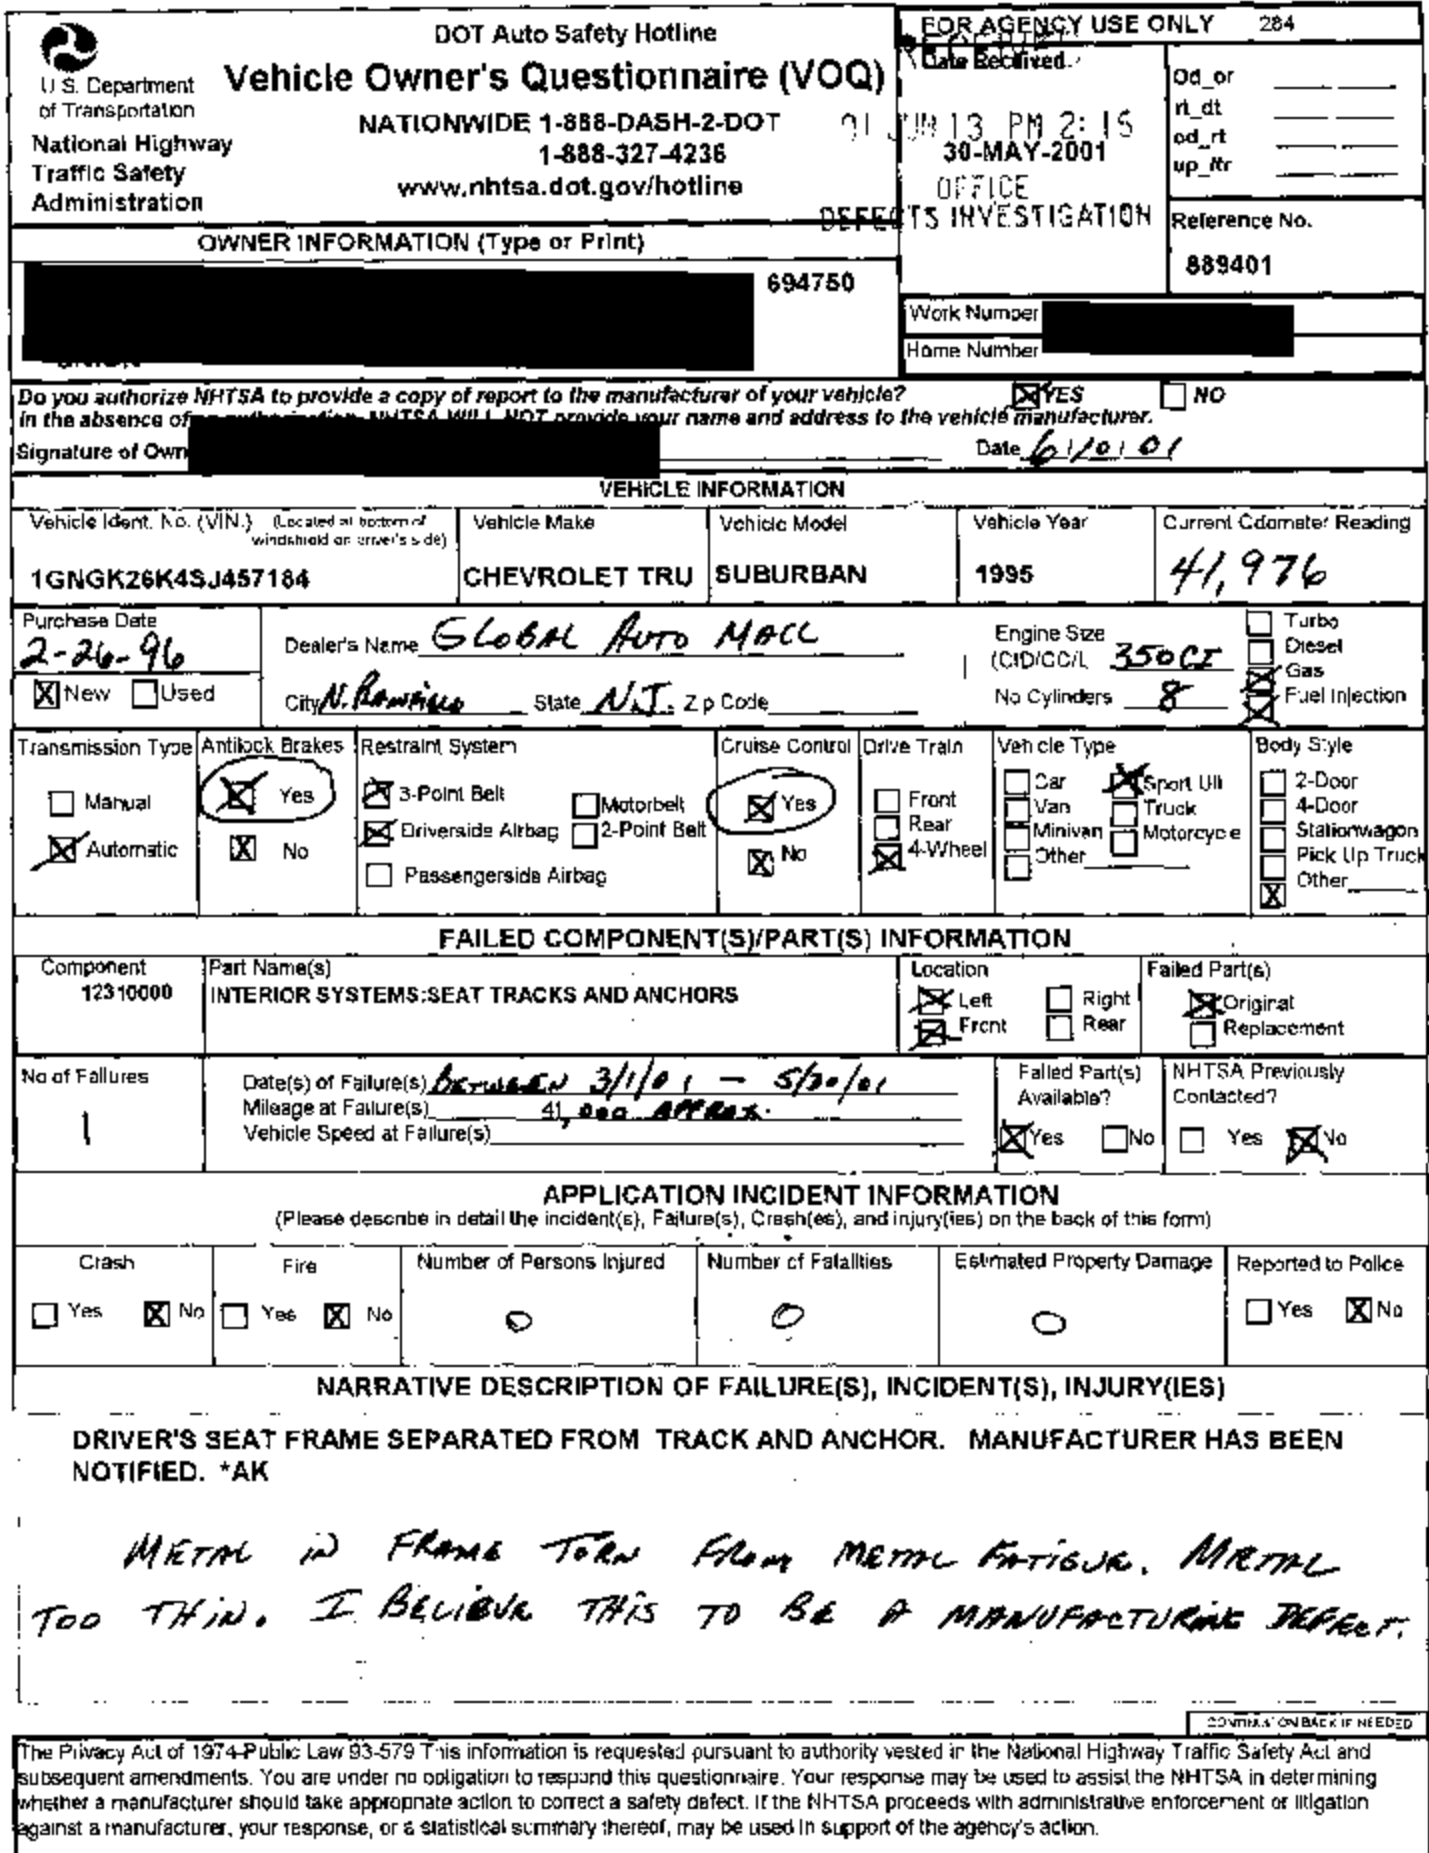 DOT Auto Safety Hotline
Vehicle Owner's Questionnaire (VOQ)
NATIONWIDE 1-888-DASH-2-DOT
1-888-327-4236
www.nhtsa.dot.gov/hotline
U.S. Department
of Transportation
National Highway
Traffic Safety
Administration
FOR AGENCY USE ONLY 284
Date Received
01 JUN 13 PM 2:15
30-MAY-2001
OFFICE
DEFECTS INVESTIGATION
Od_or
rt_dt
od_rt
up_ltr
Reference No.
889401
OWNER INFORMATION (Type or Print)
694750
Work Number
Home Number
Do you authorize NHTSA to provide a copy of report to the manufacturer of your vehicle? YES NO
In the absence of NHTSA WILL NOT provide your name and address to the vehicle manufacturer.
Signature of Own Date 6/10/01
VEHICLE INFORMATION
Vehicle Ident. No. (VIN.) (Located at bottom of
windshield on driver's side)
1GNGK26K4SJ457184
Vehicle Make
CHEVROLET TRU
Vehicle Model
SUBURBAN
Vehicle Year
1995
Current Odometer Reading
41,976
Purchase Date
2-26-96
New Used
Dealer's Name GLOBAL AUTO MALL
City N. Plainfield State N.J. Zip Code
Engine Size
(CID/CC/L 350 CI
No Cylinders 8
Turbo
Diesel
Gas
Fuel Injection
Transmission Type
Manual
Automatic
Antilock Brakes
Yes
No
Restraint System
3-Point Belt
Driverside Airbag
Passengerside Airbag
Motorbelt
2-Point Belt
Cruise Control
Yes
No
Drive Train
Front
Rear
4-Wheel
Vehicle Type
Car
Van
Minivan
Other
Sport Util
Truck
Motorcycle
Body Style
2-Door
4-Door
Stationwagon
Pick Up Truck
Other
FAILED COMPONENT(S)/PART(S) INFORMATION
Component
12310000
Part Name(s)
INTERIOR SYSTEMS:SEAT TRACKS AND ANCHORS
Location
Left Right
Front Rear
Failed Part(s)
Original
Replacement
No of Failures
1
Date(s) of Failure(s) BETWEEN 3/1/01 - 5/30/01
Mileage at Failure(s) 41,000 APPROX.
Vehicle Speed at Failure(s)
Failed Part(s)
Available?
Yes No
NHTSA Previously
Contacted?
Yes No
APPLICATION INCIDENT INFORMATION
(Please describe in detail the incident(s), Failure(s), Crash(es), and injury(ies) on the back of this form)
Crash
Yes No
Fire
Yes No
Number of Persons Injured
0
Number of Fatalities
0
Estimated Property Damage
0
Reported to Police
Yes No
NARRATIVE DESCRIPTION OF FAILURE(S), INCIDENT(S), INJURY(IES)
DRIVER'S SEAT FRAME SEPARATED FROM TRACK AND ANCHOR. MANUFACTURER HAS BEEN
NOTIFIED. *AK
METAL IN FRAME TORN FROM METAL FATIGUE. METAL
TOO THIN. I BELIEVE THIS TO BE A MANUFACTURING DEFECT.
CONTINUE ON BACK IF NEEDED
The Privacy Act of 1974-Public Law 93-579 This information is requested pursuant to authority vested in the National Highway Traffic Safety Act and
subsequent amendments. You are under no obligation to respond this questionnaire. Your response may be used to assist the NHTSA in determining
whether a manufacturer should take appropriate action to correct a safety defect. If the NHTSA proceeds with administrative enforcement or litigation
against a manufacturer, your response, or a statistical summary thereof, may be used in support of the agency's action.